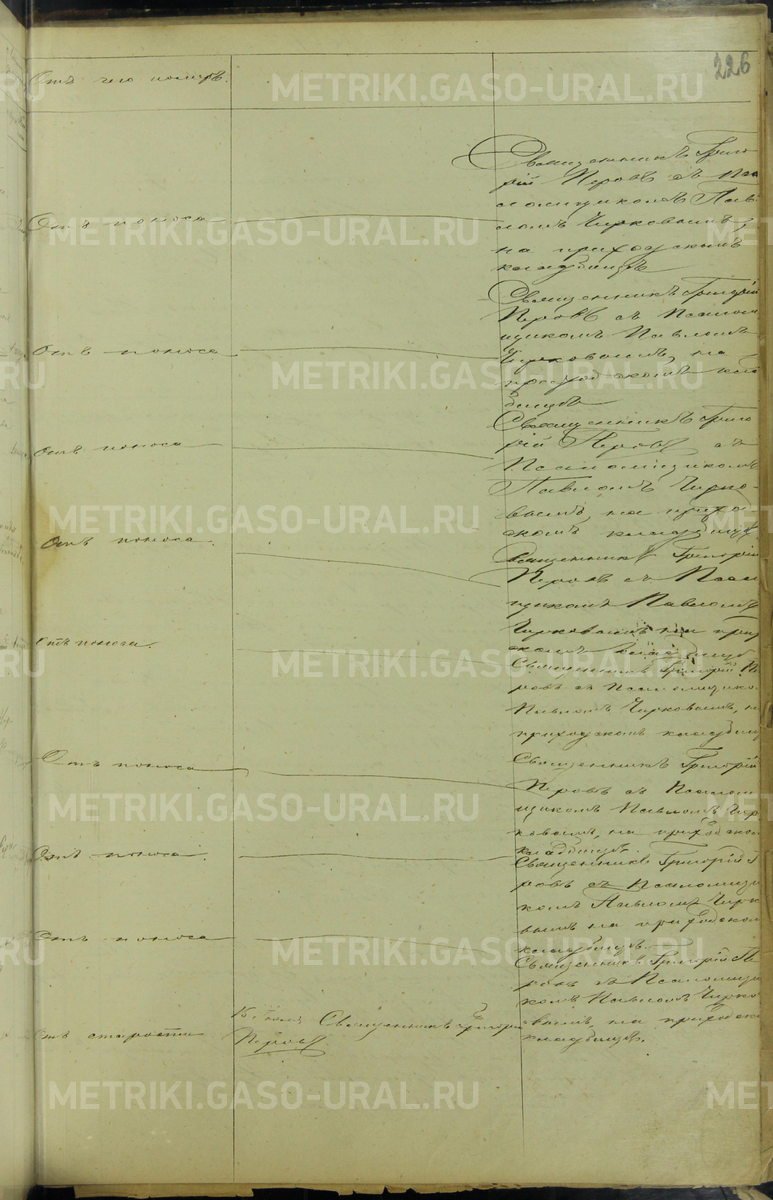 226
Отъ чего померъ.
Священникъ Григо
рій Перовъ съ Пса
ломщикомъ Пав
ломъ Чирковымъ,
на приходскомъ
кладбищѣ
Отъ поноса
Священникъ Григорій
Перовъ съ Псалом
щикомъ Павломъ
Чирковымъ, на
приходскомъ клад
бищѣ
Отъ поноса
Священникъ Григо
рій Перовъ съ
Псаломщикомъ
Павломъ Чирко-
вымъ, на прихо
скомъ кладбищѣ
Отъ поноса
Священникъ Григорій
Перовъ съ Псалом
щикомъ Павломъ
Чирковымъ на при
скомъ кладбищ
Отъ поноса.
Священникъ Григорій Пе
ровъ съ Псаломщико
Павломъ Чирковымъ, н
приходскомъ кладбищ
Отъ поноса.
Священникъ Григорій
Перовъ съ Псалом
щикомъ Павломъ Чир
ковымъ, на приходском
кладбищѣ.
Отъ поноса
Священникъ Григорій П
ровъ съ Псаломщи
комъ Павломъ Чирк
вымъ на приходском
кладбищѣ.
Отъ поноса.
Священникъ Григорій П
ровъ съ Псаломщи
комъ Павломъ Чирко
вымъ, на приходско
кладбищѣ.
Отъ поноса
Отъ старости
Священникъ Григорій
Перовъ
METRIKI.GASO-URAL.RU